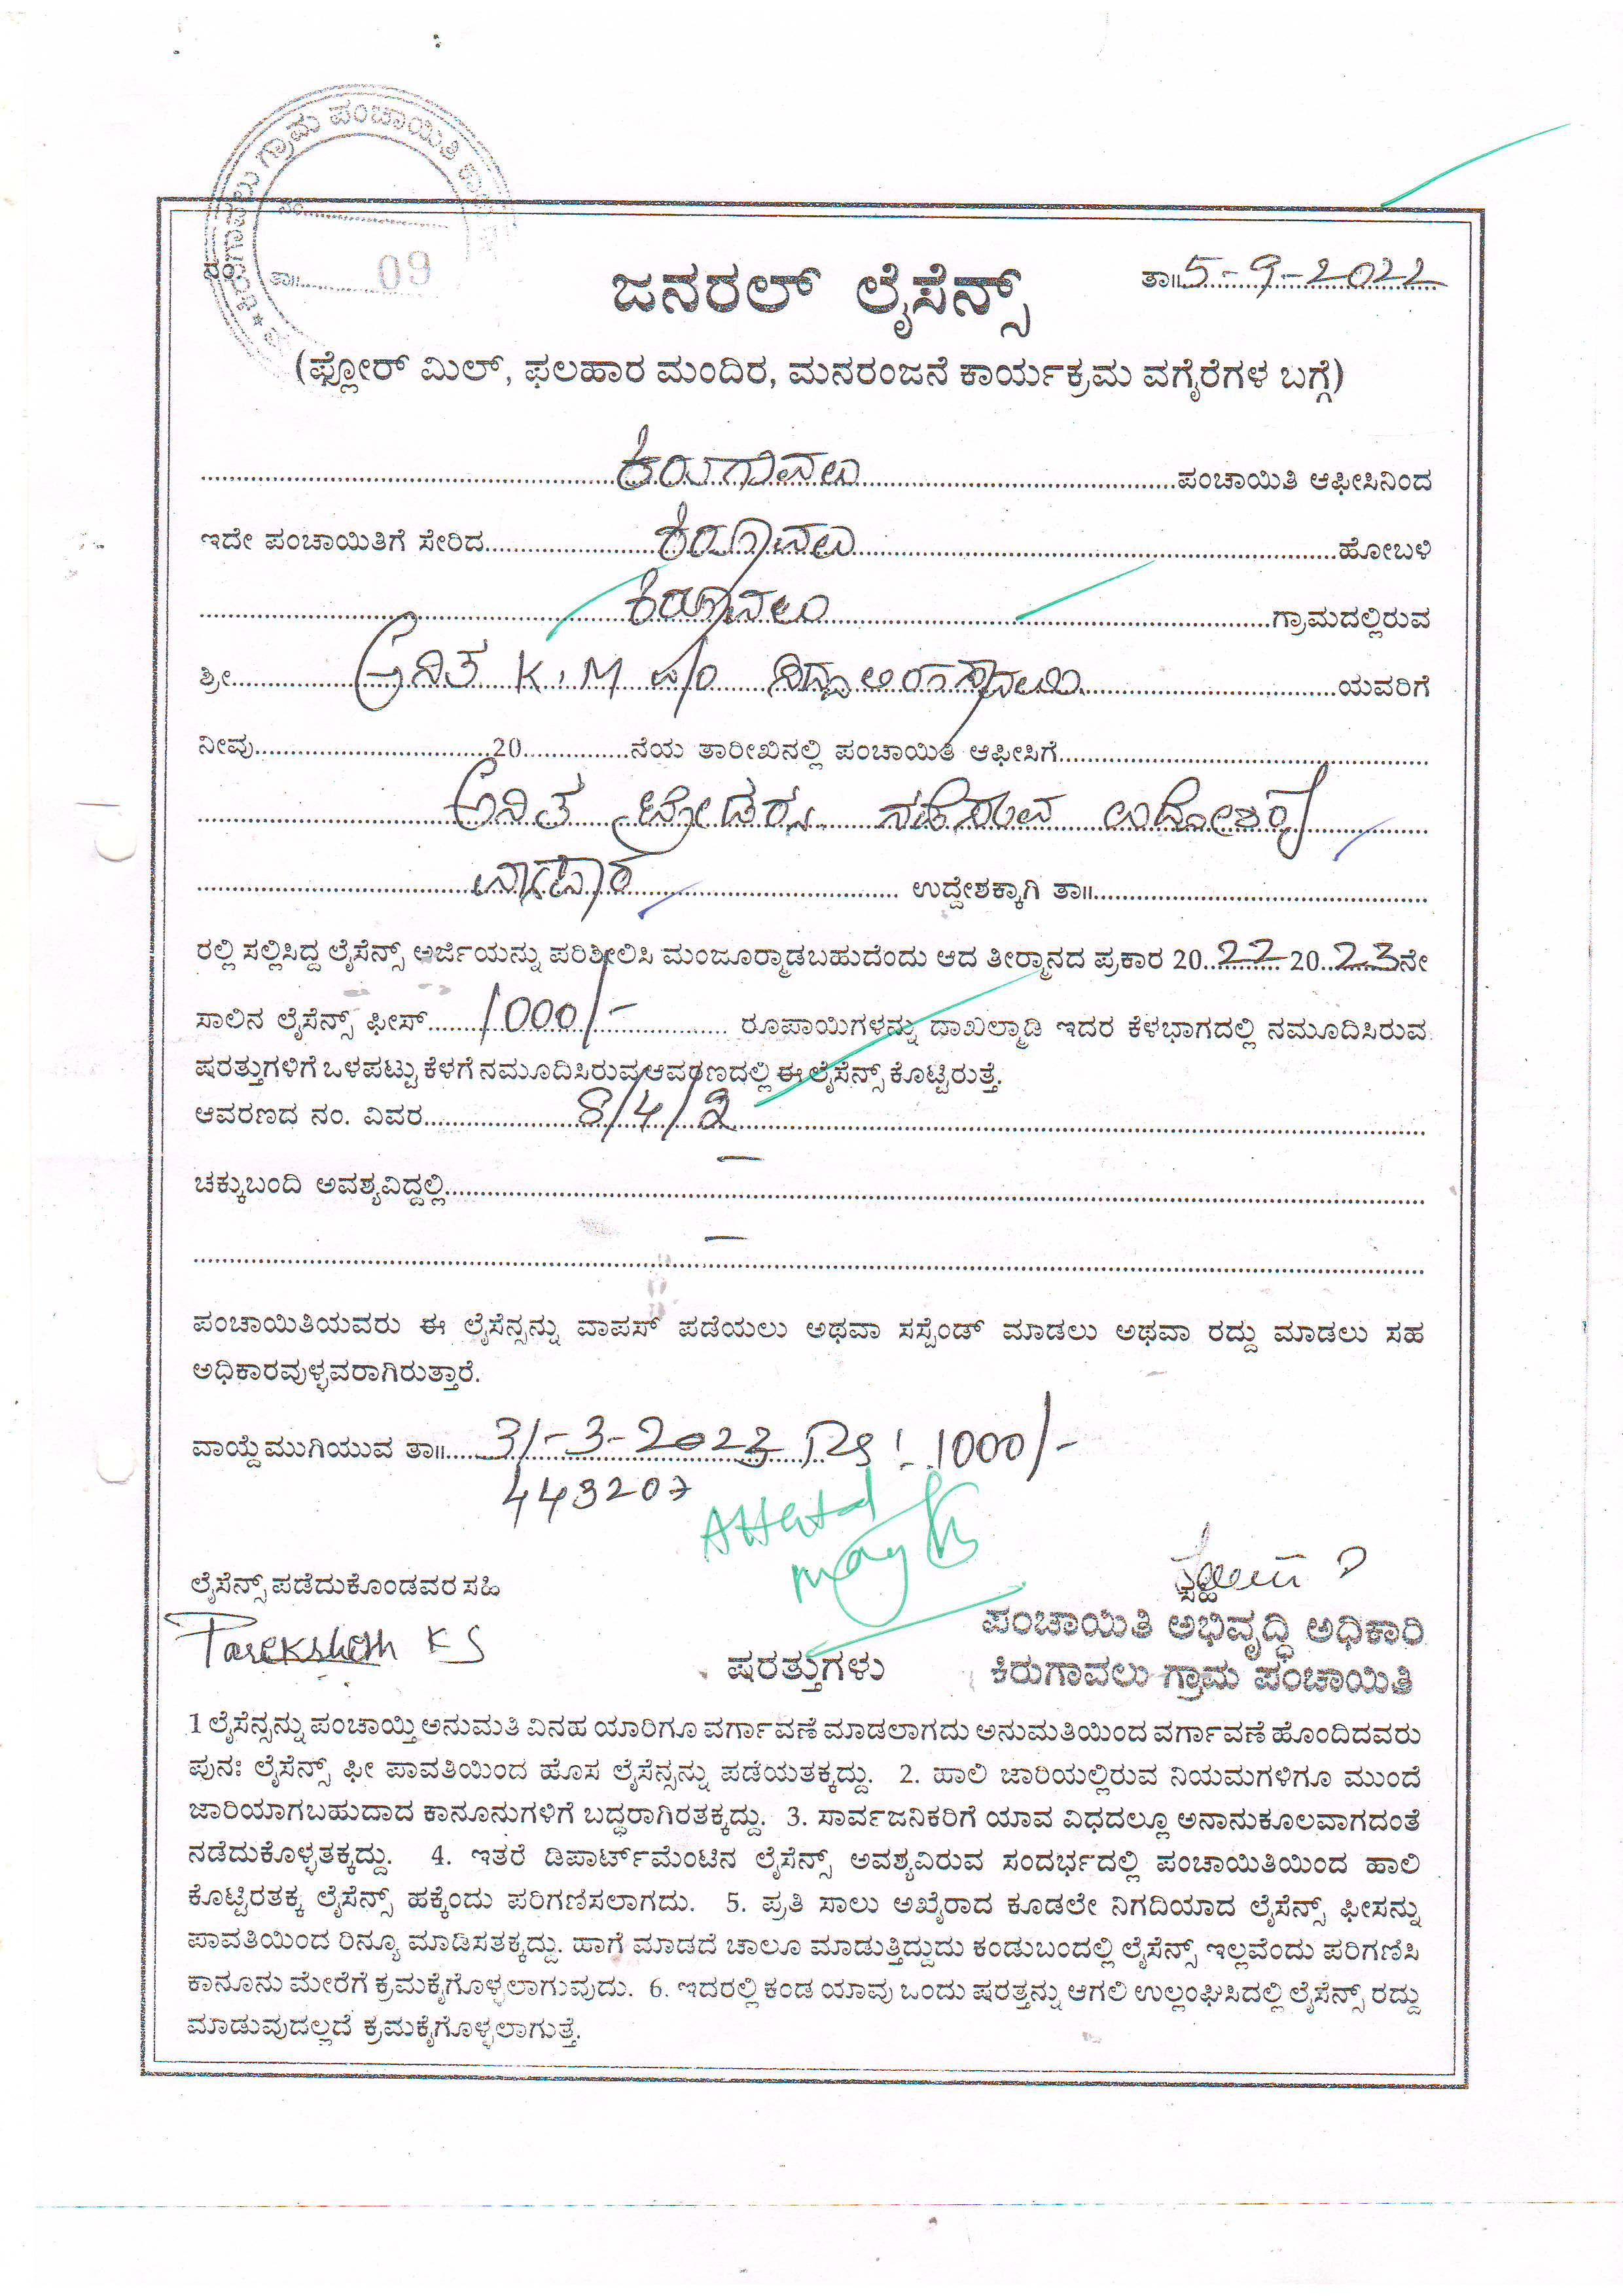 ಗ್ರಾಮ ಪಂಚಾಯಿತಿ
ನಂ
ನಂ. ತಾ॥ 09
ತಾ॥ 5-9-2022
ಜನರಲ್ ಲೈಸೆನ್ಸ್
(ಫ್ಲೋರ್ ಮಿಲ್, ಫಲಹಾರ ಮಂದಿರ, ಮನರಂಜನೆ ಕಾರ್ಯಕ್ರಮ ವಗೈರೆಗಳ ಬಗ್ಗೆ)
ಕಿರುಗಾವಲು ಪಂಚಾಯಿತಿ ಆಫೀಸಿನಿಂದ
ಇದೇ ಪಂಚಾಯಿತಿಗೆ ಸೇರಿದ ಹೋಬಳಿ
ಗ್ರಾಮದಲ್ಲಿರುವ
ಶ್ರೀ ಅನಿತ K.M ಯವರಿಗೆ
ನೀವು 20 ನೆಯ ತಾರೀಖಿನಲ್ಲಿ ಪಂಚಾಯಿತಿ ಆಫೀಸಿಗೆ
ಅನಿತ ಟ್ರೇಡರ್ಸ್
ವ್ಯಾಪಾರ ಉದ್ದೇಶಕ್ಕಾಗಿ ತಾ॥
ರಲ್ಲಿ ಸಲ್ಲಿಸಿದ್ದ ಲೈಸೆನ್ಸ್ ಅರ್ಜಿಯನ್ನು ಪರಿಶೀಲಿಸಿ ಮಂಜೂರ್‍ಮಾಡಬಹುದೆಂದು ಆದ ತೀರ್‍ಮಾನದ ಪ್ರಕಾರ 20 22 20 23 ನೇ
ಸಾಲಿನ ಲೈಸೆನ್ಸ್ ಫೀಸ್ 1000/- ರೂಪಾಯಿಗಳನ್ನು ದಾಖಲ್ಮಾಡಿ ಇದರ ಕೆಳಭಾಗದಲ್ಲಿ ನಮೂದಿಸಿರುವ
ಷರತ್ತುಗಳಿಗೆ ಒಳಪಟ್ಟು ಕೆಳಗೆ ನಮೂದಿಸಿರುವ ಆವರಣದಲ್ಲಿ ಈ ಲೈಸೆನ್ಸ್ ಕೊಟ್ಟಿರುತ್ತೆ.
ಆವರಣದ ನಂ. ವಿವರ 8/4/2
ಚಕ್ಕುಬಂದಿ ಅವಶ್ಯವಿದ್ದಲ್ಲಿ —
—
ಪಂಚಾಯಿತಿಯವರು ಈ ಲೈಸೆನ್ಸನ್ನು ವಾಪಸ್ ಪಡೆಯಲು ಅಥವಾ ಸಸ್ಪೆಂಡ್ ಮಾಡಲು ಅಥವಾ ರದ್ದು ಮಾಡಲು ಸಹ
ಅಧಿಕಾರವುಳ್ಳವರಾಗಿರುತ್ತಾರೆ.
ವಾಯ್ದೆಮುಗಿಯುವ ತಾ॥ 31-3-2023 Rs: 1000/-
443207
Attested
ಲೈಸೆನ್ಸ್ ಪಡೆದುಕೊಂಡವರ ಸಹಿ
Pareekshith KS
ಪಂಚಾಯಿತಿ ಅಭಿವೃದ್ಧಿ ಅಧಿಕಾರಿ
ಕಿರುಗಾವಲು ಗ್ರಾಮ ಪಂಚಾಯಿತಿ
ಷರತ್ತುಗಳು
1 ಲೈಸೆನ್ಸನ್ನು ಪಂಚಾಯ್ತಿ ಅನುಮತಿ ವಿನಹ ಯಾರಿಗೂ ವರ್ಗಾವಣೆ ಮಾಡಲಾಗದು ಅನುಮತಿಯಿಂದ ವರ್ಗಾವಣೆ ಹೊಂದಿದವರು
ಪುನಃ ಲೈಸೆನ್ಸ್ ಫೀ ಪಾವತಿಯಿಂದ ಹೊಸ ಲೈಸೆನ್ಸನ್ನು ಪಡೆಯತಕ್ಕದ್ದು. 2. ಹಾಲಿ ಜಾರಿಯಲ್ಲಿರುವ ನಿಯಮಗಳಿಗೂ ಮುಂದೆ
ಜಾರಿಯಾಗಬಹುದಾದ ಕಾನೂನುಗಳಿಗೆ ಬದ್ಧರಾಗಿರತಕ್ಕದ್ದು. 3. ಸಾರ್ವಜನಿಕರಿಗೆ ಯಾವ ವಿಧದಲ್ಲೂ ಅನಾನುಕೂಲವಾಗದಂತೆ
ನಡೆದುಕೊಳ್ಳತಕ್ಕದ್ದು. 4. ಇತರೆ ಡಿಪಾರ್ಟ್‌ಮೆಂಟಿನ ಲೈಸೆನ್ಸ್ ಅವಶ್ಯವಿರುವ ಸಂದರ್ಭದಲ್ಲಿ ಪಂಚಾಯಿತಿಯಿಂದ ಹಾಲಿ
ಕೊಟ್ಟಿರತಕ್ಕ ಲೈಸೆನ್ಸ್ ಹಕ್ಕೆಂದು ಪರಿಗಣಿಸಲಾಗದು. 5. ಪ್ರತಿ ಸಾಲು ಅಖೈರಾದ ಕೂಡಲೇ ನಿಗದಿಯಾದ ಲೈಸೆನ್ಸ್ ಫೀಸನ್ನು
ಪಾವತಿಯಿಂದ ರಿನ್ಯೂ ಮಾಡಿಸತಕ್ಕದ್ದು. ಹಾಗೆ ಮಾಡದೆ ಚಾಲೂ ಮಾಡುತ್ತಿದ್ದುದು ಕಂಡುಬಂದಲ್ಲಿ ಲೈಸೆನ್ಸ್ ಇಲ್ಲವೆಂದು ಪರಿಗಣಿಸಿ
ಕಾನೂನು ಮೇರೆಗೆ ಕ್ರಮಕೈಗೊಳ್ಳಲಾಗುವುದು. 6. ಇದರಲ್ಲಿ ಕಂಡ ಯಾವು ಒಂದು ಷರತ್ತನ್ನು ಆಗಲಿ ಉಲ್ಲಂಘಿಸಿದಲ್ಲಿ ಲೈಸೆನ್ಸ್ ರದ್ದು
ಮಾಡುವುದಲ್ಲದೆ ಕ್ರಮಕೈಗೊಳ್ಳಲಾಗುತ್ತೆ.